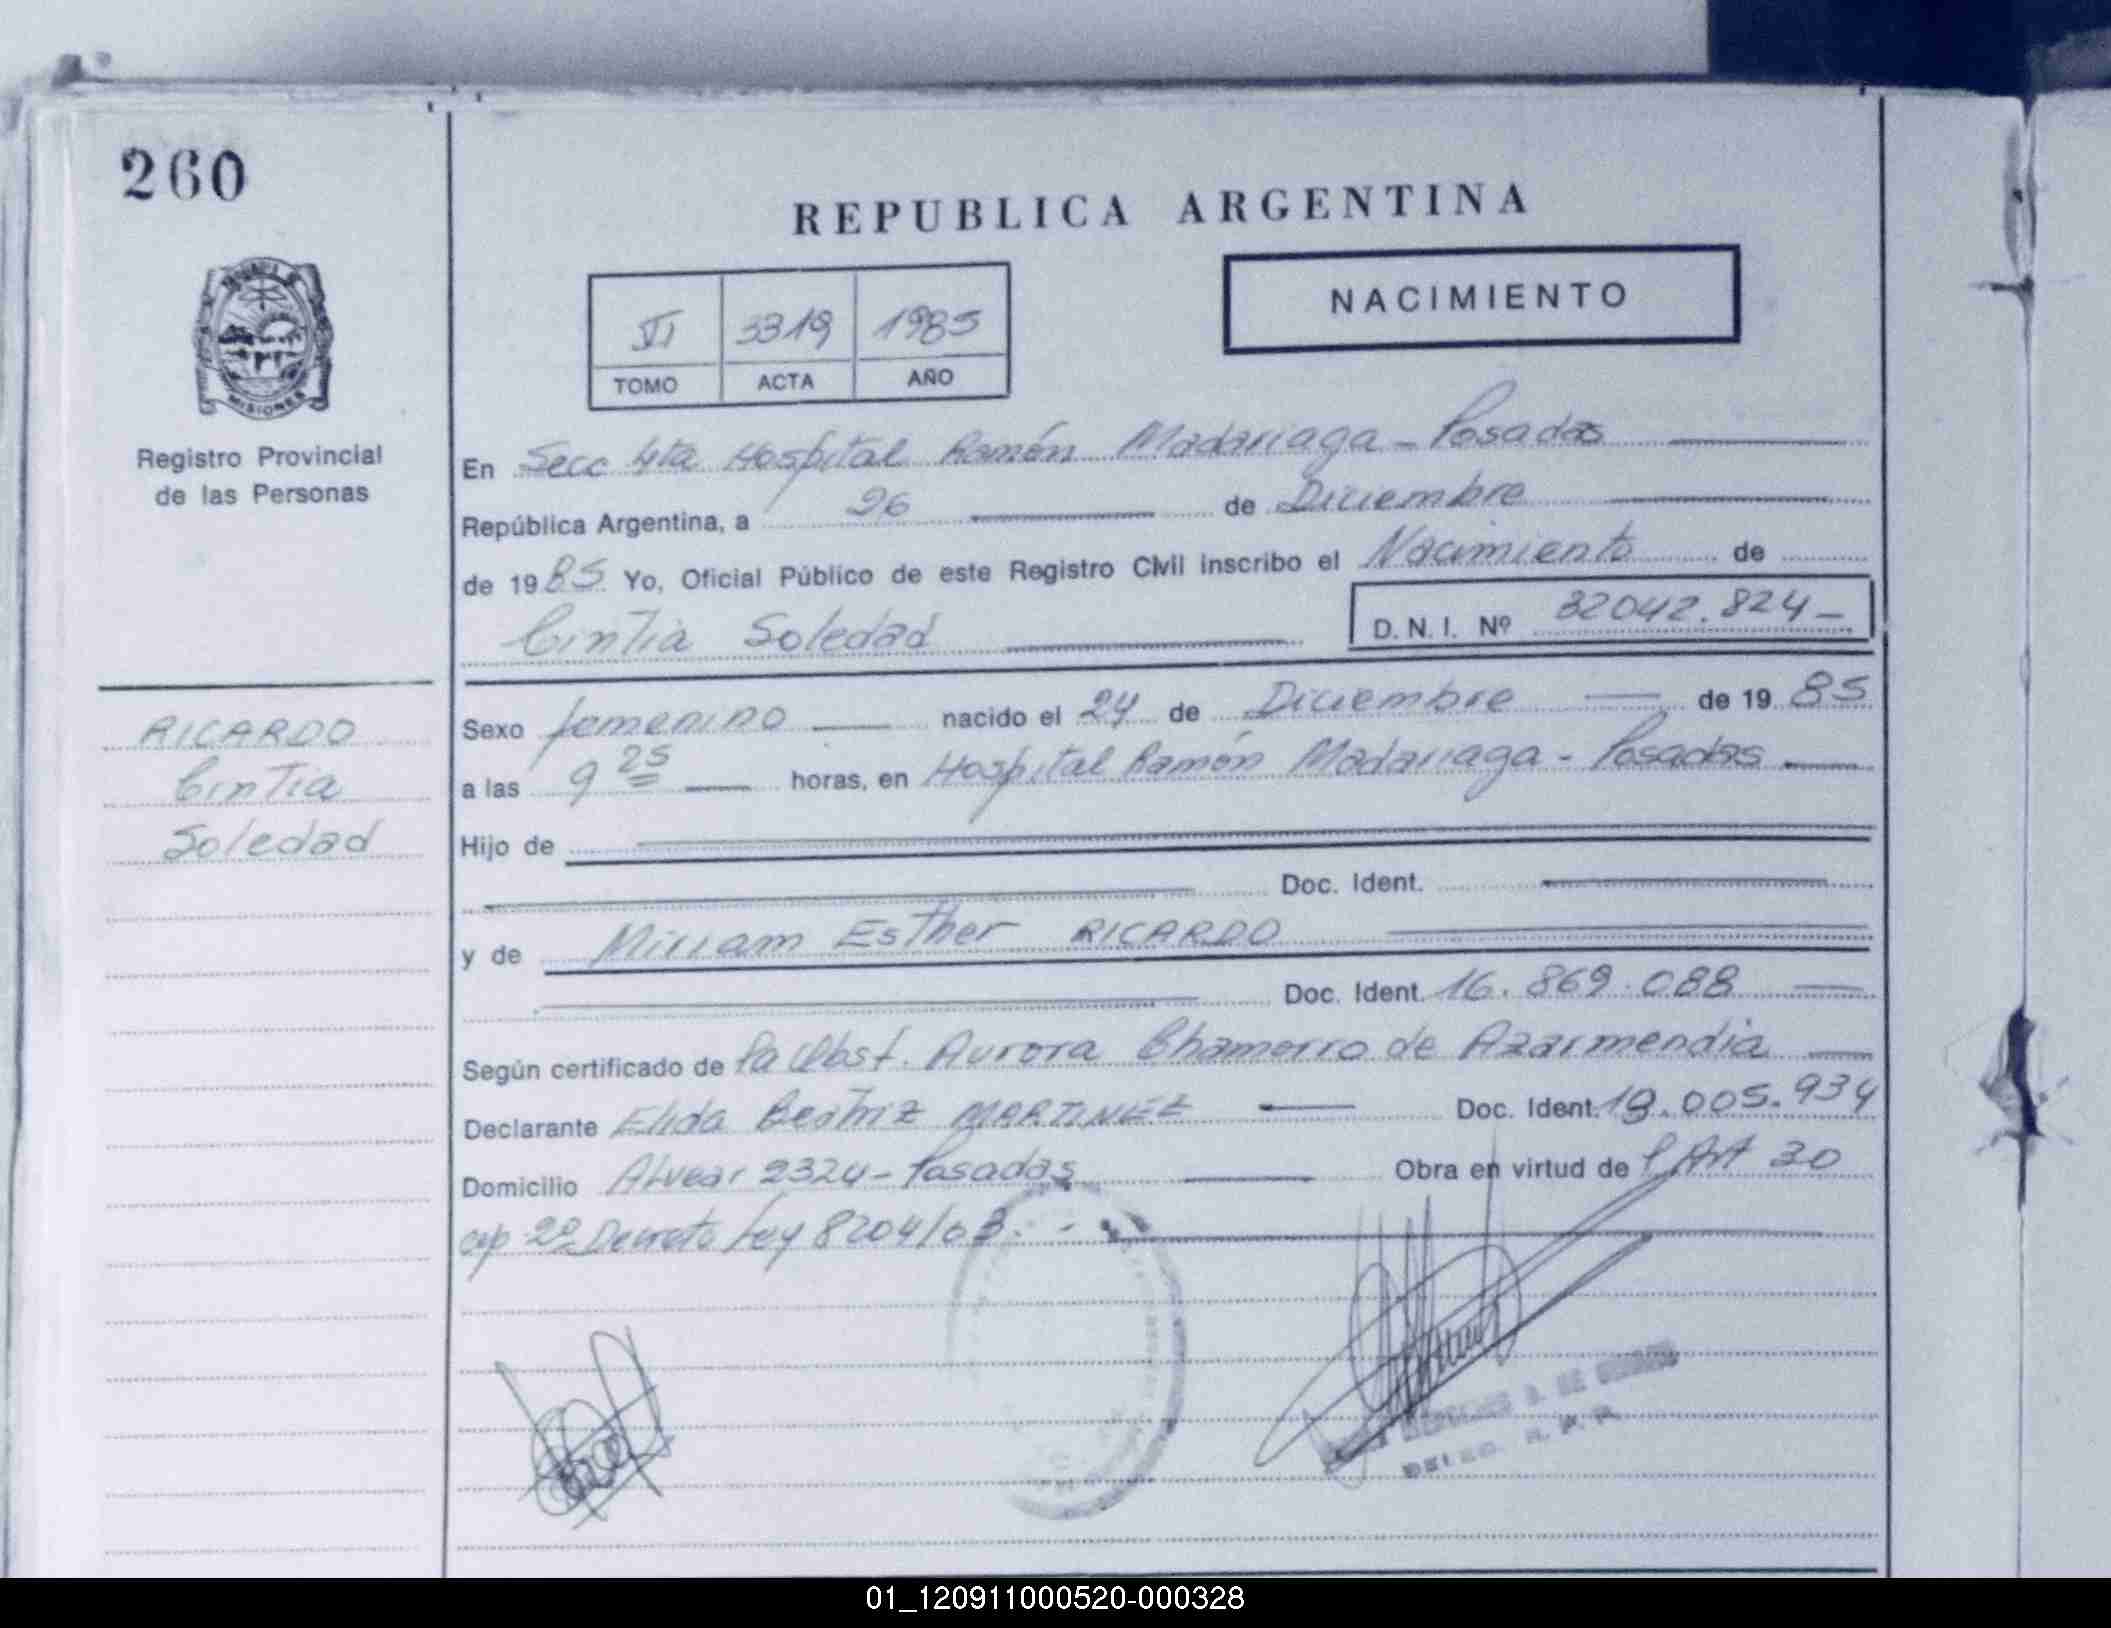 260
REPUBLICA ARGENTINA
NACIMIENTO
VI 3319 1985
TOMO ACTA AÑO
MISIONES
Registro Provincial
de las Personas
En Secc 4ta Hospital Ramón Madariaga - Posadas
República Argentina, a 26 de Diciembre
de 1985 Yo, Oficial Público de este Registro Civil inscribo el Nacimiento de
Cintia Soledad
D. N. I. Nº 32042.824-
RICARDO
Cintia
Soledad
Sexo femenino nacido el 24 de Diciembre de 1985
a las 9 25 horas, en Hospital Ramón Madariaga - Posadas
Hijo de
Doc. Ident.
y de Miriam Esther RICARDO
Doc. Ident. 16.869.088
Según certificado de Pa Obst. Aurora Chamorro de Azarmendia
Declarante Elida Beatriz MARTINEZ Doc. Ident. 19.005.934
Domicilio Alvear 2324 - Posadas Obra en virtud de l Art 30
cap 2º Decreto Ley 8204/63. -
DE
DELEG. R. P. P.
01_120911000520-000328